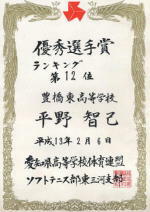 優秀選手賞
ランキング
第12位
豊橋東高等学校
平野 智己
平成13年2月6日
愛知県高等学校体育連盟
ソフトテニス部東三河支部